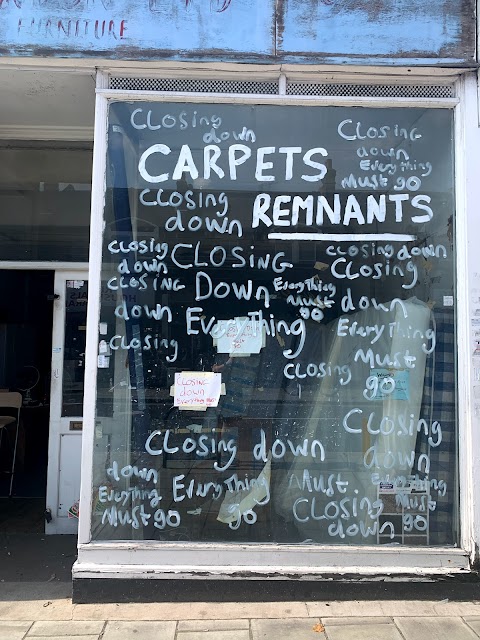 FURNITURE
Closing
down
Closing
down
Everything
Must go
CARPETS
REMNANTS
Closing
down
Closing
down
Closing
down
Closing
Closing
Down
Everything
Everything
Must
go
Closing down
Closing
down
Everything
Must
go
Closing
Closing
down
Everything go
Closing
down
Everything
Must
go
Closing down
Everything
Must
go
down
Everything
Must go
Closing
down